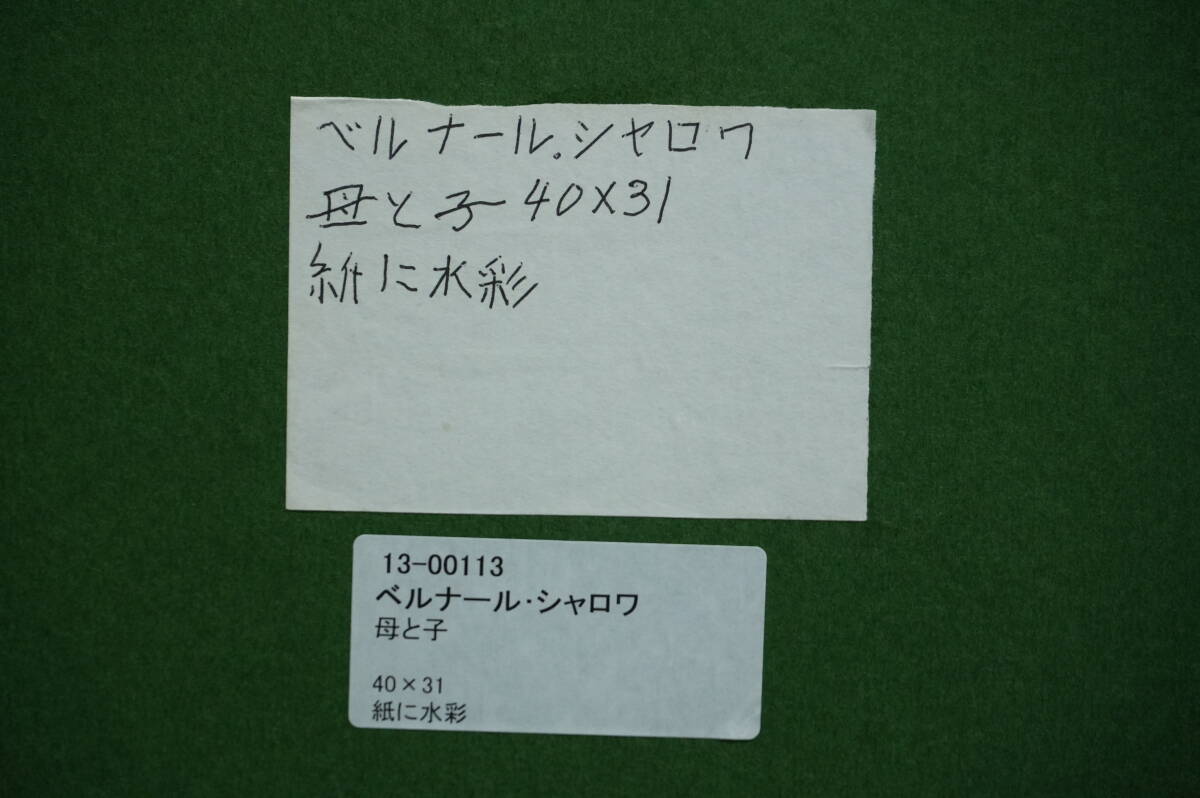 ベルナール.シャロワ
母と子 40X31
紙に水彩
13-00113
ベルナール・シャロワ
母と子
40×31
紙に水彩